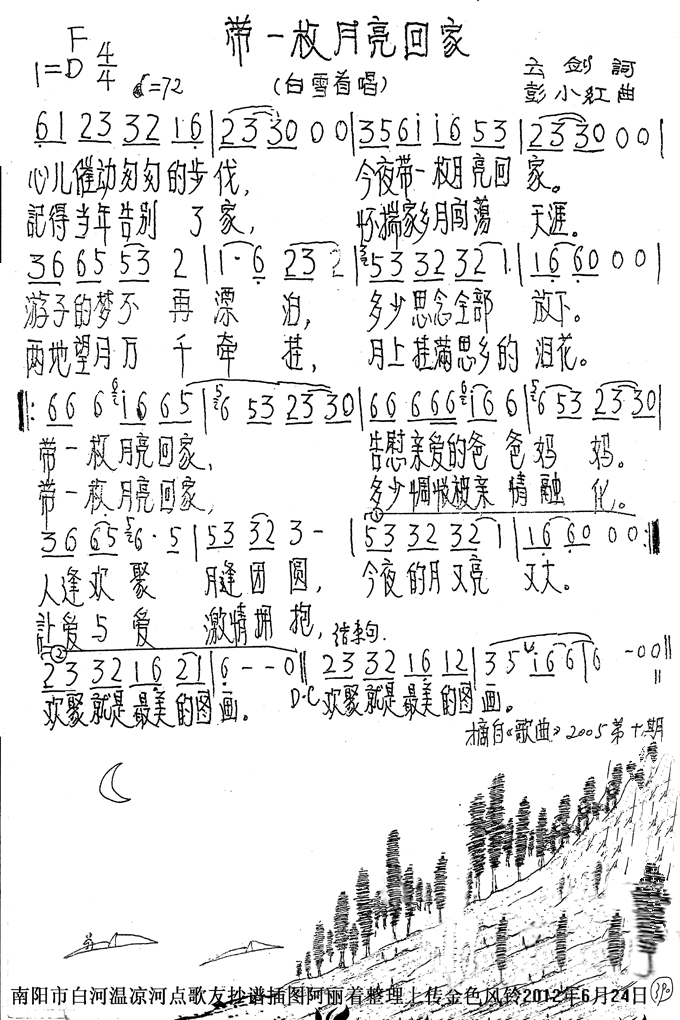 带一枚月亮回家
F
1=D 4/4 ♩=72
(白雪首唱)
云剑詞
彭小红曲
61 23 32 16 | 23 30 0 0 | 3561 116 53 | 23 30 0 0 |
心儿催动匆匆的步伐， 今夜带一枚月亮回家。
記得当年告别了家， 怀揣家乡月闯荡天涯。
36 65 53 2 | 1· 6 23 2 | 53 32 32 1 | 16 60 0 0 |
游子的梦不再漂泊， 多少思念全部放下。
两地望月万千牵挂， 月上挂满思乡的泪花。
66 6 1 6 65 | 6 53 23 30 | 66 666 16 6 | 6 53 23 30 |
带一枚月亮回家， 告慰亲爱的爸爸妈妈。
带一枚月亮回家， 多少惆怅被亲情融化。
36 65 6· 5 | 53 32 3 - | 53 32 32 1 | 16 60 0 0 :||
人逢欢聚月逢团圆， 今夜的月又亮又大。
訁爱与爱激情拥抱，
结束句.
23 32 16 21 | 6 - - 0 || D.C 23 32 16 12 | 3 5 16 6 | 6 - 0 0 ||
欢聚就是最美的图画。 欢聚就是最美的图画。
摘自《歌曲》2005第十期
南阳市白河温凉河点歌友抄谱插图阿丽着整理上传金色风铃2012年6月24日
390